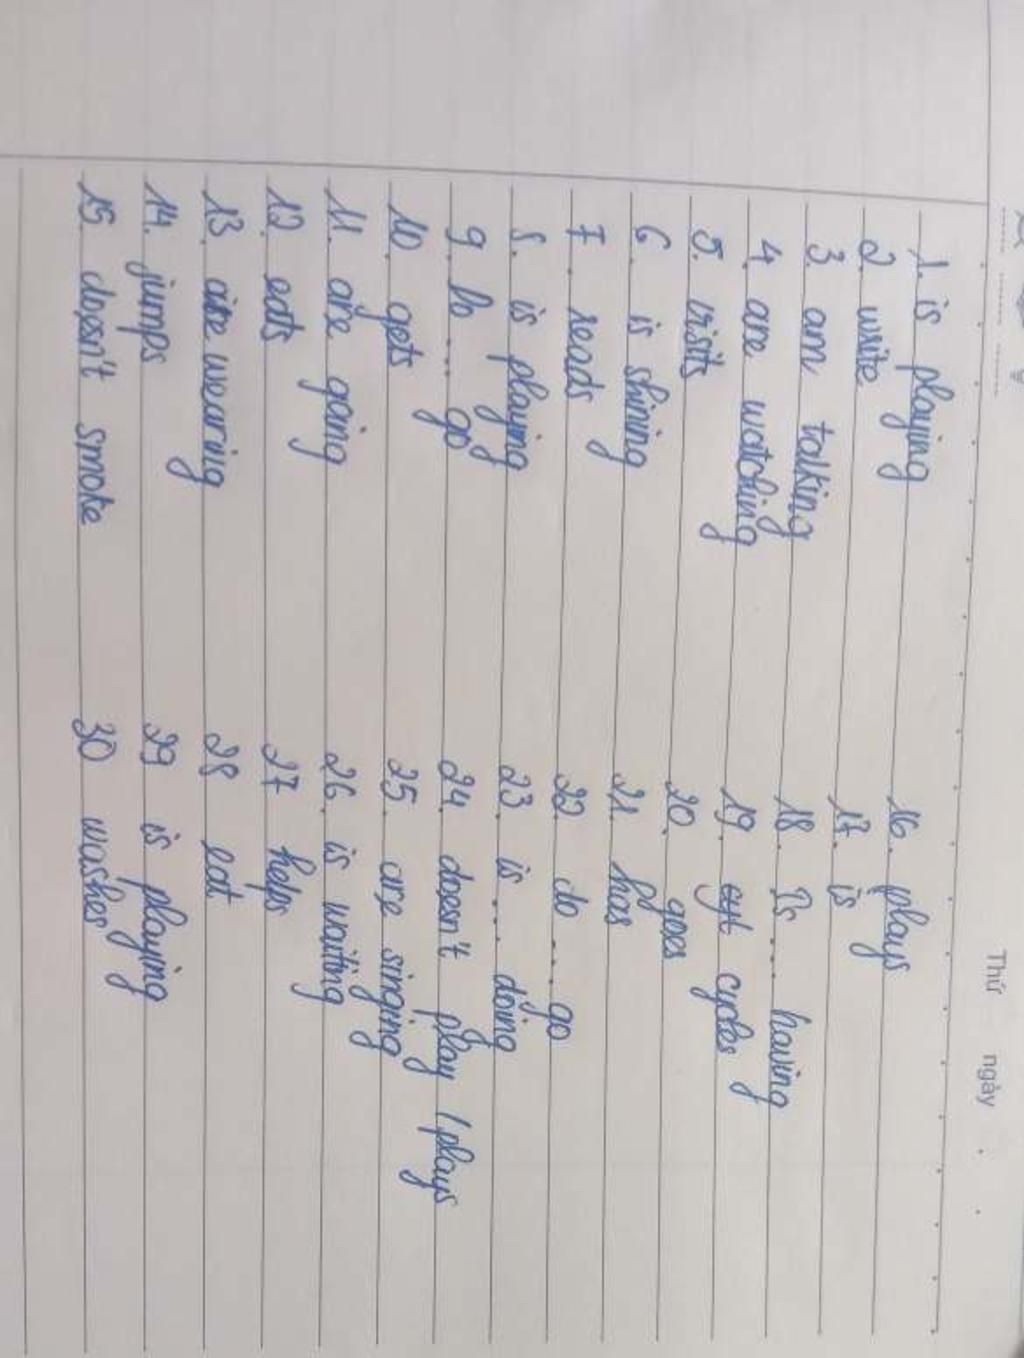 Thứ ngày
1. is playing
2. write
3. am talking
4. are watching
5. visits
6. is shining
7. reads
8. is playing
9. Do .... go
10. gets
11. are going
12. eats
13. are wearing
14. jumps
15. doesn't smoke
16. plays
17. is
18. Is .... having
19. cycles
20. goes
21. has
22. do .... go
23. is .... doing
24. doesn't play / plays
25. are singing
26. is waiting
27 helps
28 eat
29 is playing
30 washes